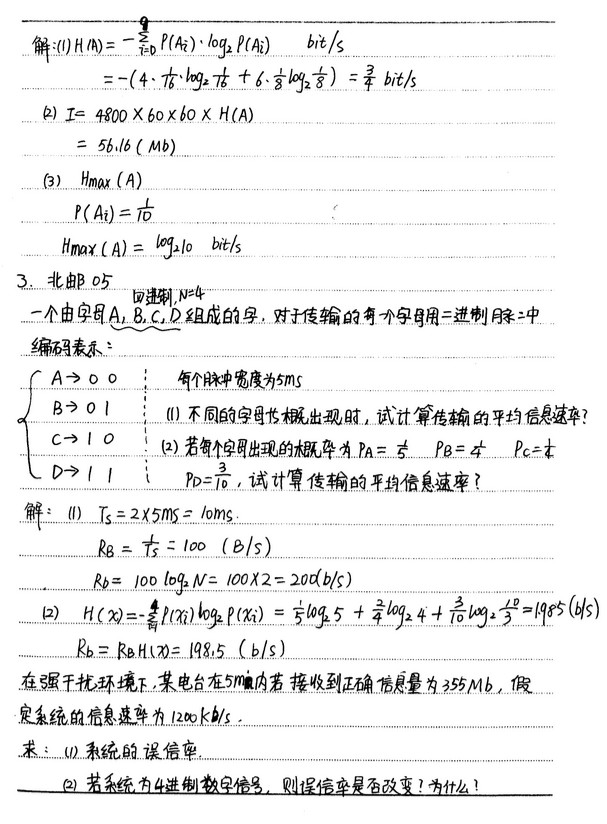 解:(1) H(A) = -∑_{i=0}^{9} P(Ai)·log₂P(Ai) bit/s
= -(4·1/16·log₂1/16 + 6·1/8log₂1/8) = 3/4 bit/s
(2) I = 4800×60×60×H(A)
= 56.16 (Mb)
(3) Hmax(A)
P(Ai) = 1/10
Hmax(A) = log₂10 bit/s
3. 北邮05
四进制,N=4
一个由字母A,B,C,D组成的字.对于传输的每个字母用二进制脉冲
编码表示:
A→00 每个脉冲宽度为5ms
B→01 (1) 不同的字母等概出现时,试计算传输的平均信息速率?
C→10 (2) 若每个字母出现的概率为PA=1/5 PB=1/4 PC=1/4
D→11 PD=3/10,试计算传输的平均信息速率?
解: (1) Ts=2×5ms=10ms.
RB=1/Ts=100 (B/s)
Rb=100log₂N=100×2=200(b/s)
(2) H(x)=-∑_{i=1}^{4}P(xi)log₂P(xi)=1/5log₂5+2/4log₂4+3/10log₂10/3=1.985(b/s)
Rb=RB.H(x)=198.5 (b/s)
在强干扰环境下,某电台在5min内若接收到正确信息量为355Mb,假
定系统的信息速率为1200kb/s.
求: (1) 系统的误信率.
(2) 若系统为4进制数字信号,则误信率是否改变?为什么?